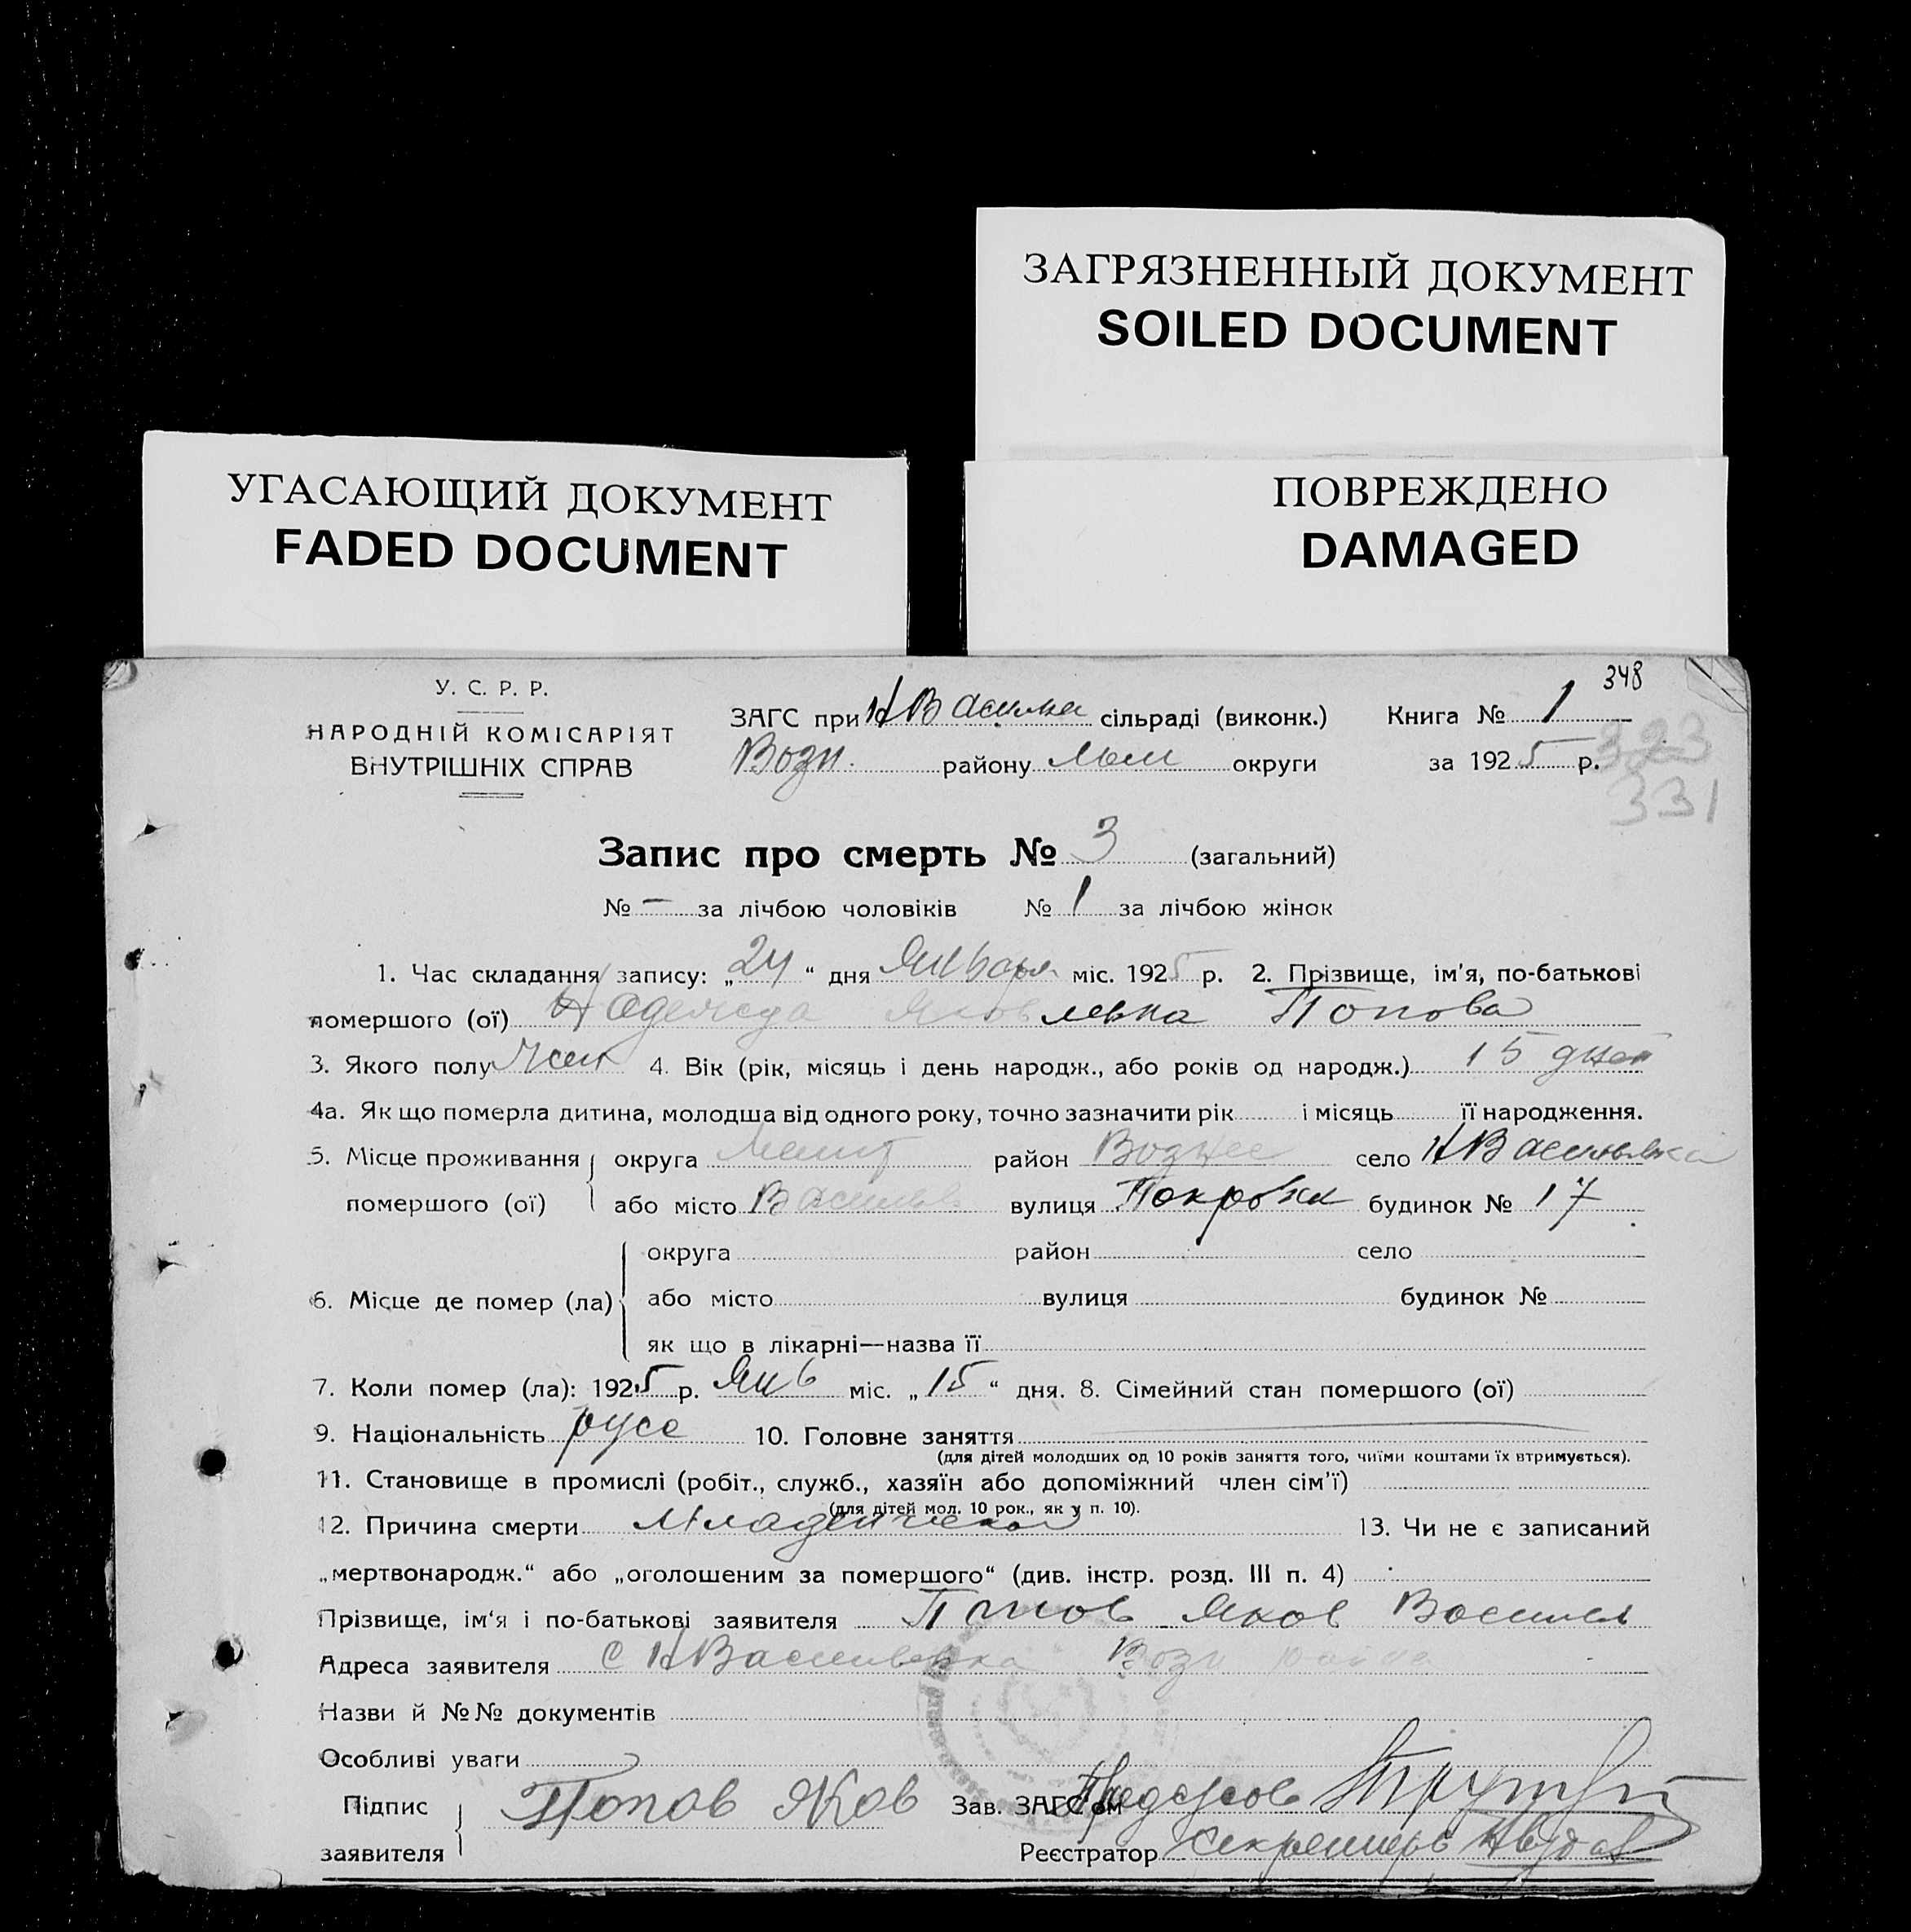 ЗАГРЯЗНЕННЫЙ ДОКУМЕНТ
SOILED DOCUMENT
УГАСАЮЩИЙ ДОКУМЕНТ
FADED DOCUMENT
ПОВРЕЖДЕНО
DAMAGED
348
У. С. Р. Р.
НАРОДНІЙ КОМІСАРІЯТ
ВНУТРІШНІХ СПРАВ
ЗАГС при сільраді (виконк.) Книга № 1
Возн. району округи за 1925 р.
323
331
Запис про смерть № 3 (загальний)
№ — за лічбою чоловіків № 1 за лічбою жінок
1. Час складання запису: „24“ дня Января міс. 1925 р. 2. Прізвище, ім'я, по-батькові
помершого (ої) Надежда Яковлевна Попова
3. Якого полу Жен 4. Вік (рік, місяць і день народж., або років од народж.) 15 дней
4а. Як що померла дитина, молодша від одного року, точно зазначити рік і місяць її народження.
5. Місце проживання округа Мелит район село Н Васильевка
помершого (ої) або місто Васильев вулиця Покровск будинок № 17
округа район село
6. Місце де помер (ла) або місто вулиця будинок №
як що в лікарні—назва її
7. Коли помер (ла): 1925 р. Янв міс. „15“ дня. 8. Сімейний стан помершого (ої)
9. Національність русс 10. Головне заняття
(для дітей молодших од 10 років заняття того, чиїми коштами їх втримується).
11. Становище в промислі (робіт., служб., хазяїн або допоміжний член сім'ї)
(для дітей мол. 10 рок., як у п. 10).
12. Причина смерти Младенческая 13. Чи не є записаний
„мертвонародж.“ або „оголошеним за помершого“ (див. інстр. розд. III п. 4)
Прізвище, ім'я і по-батькові заявителя Попов Яков Васильев
Адреса заявителя с Н Васильевка Возн района
Назви й №№ документів
Особливі уваги
Підпис Попов Яков Зав. ЗАГС'ом
заявителя Реєстратор Секретарь